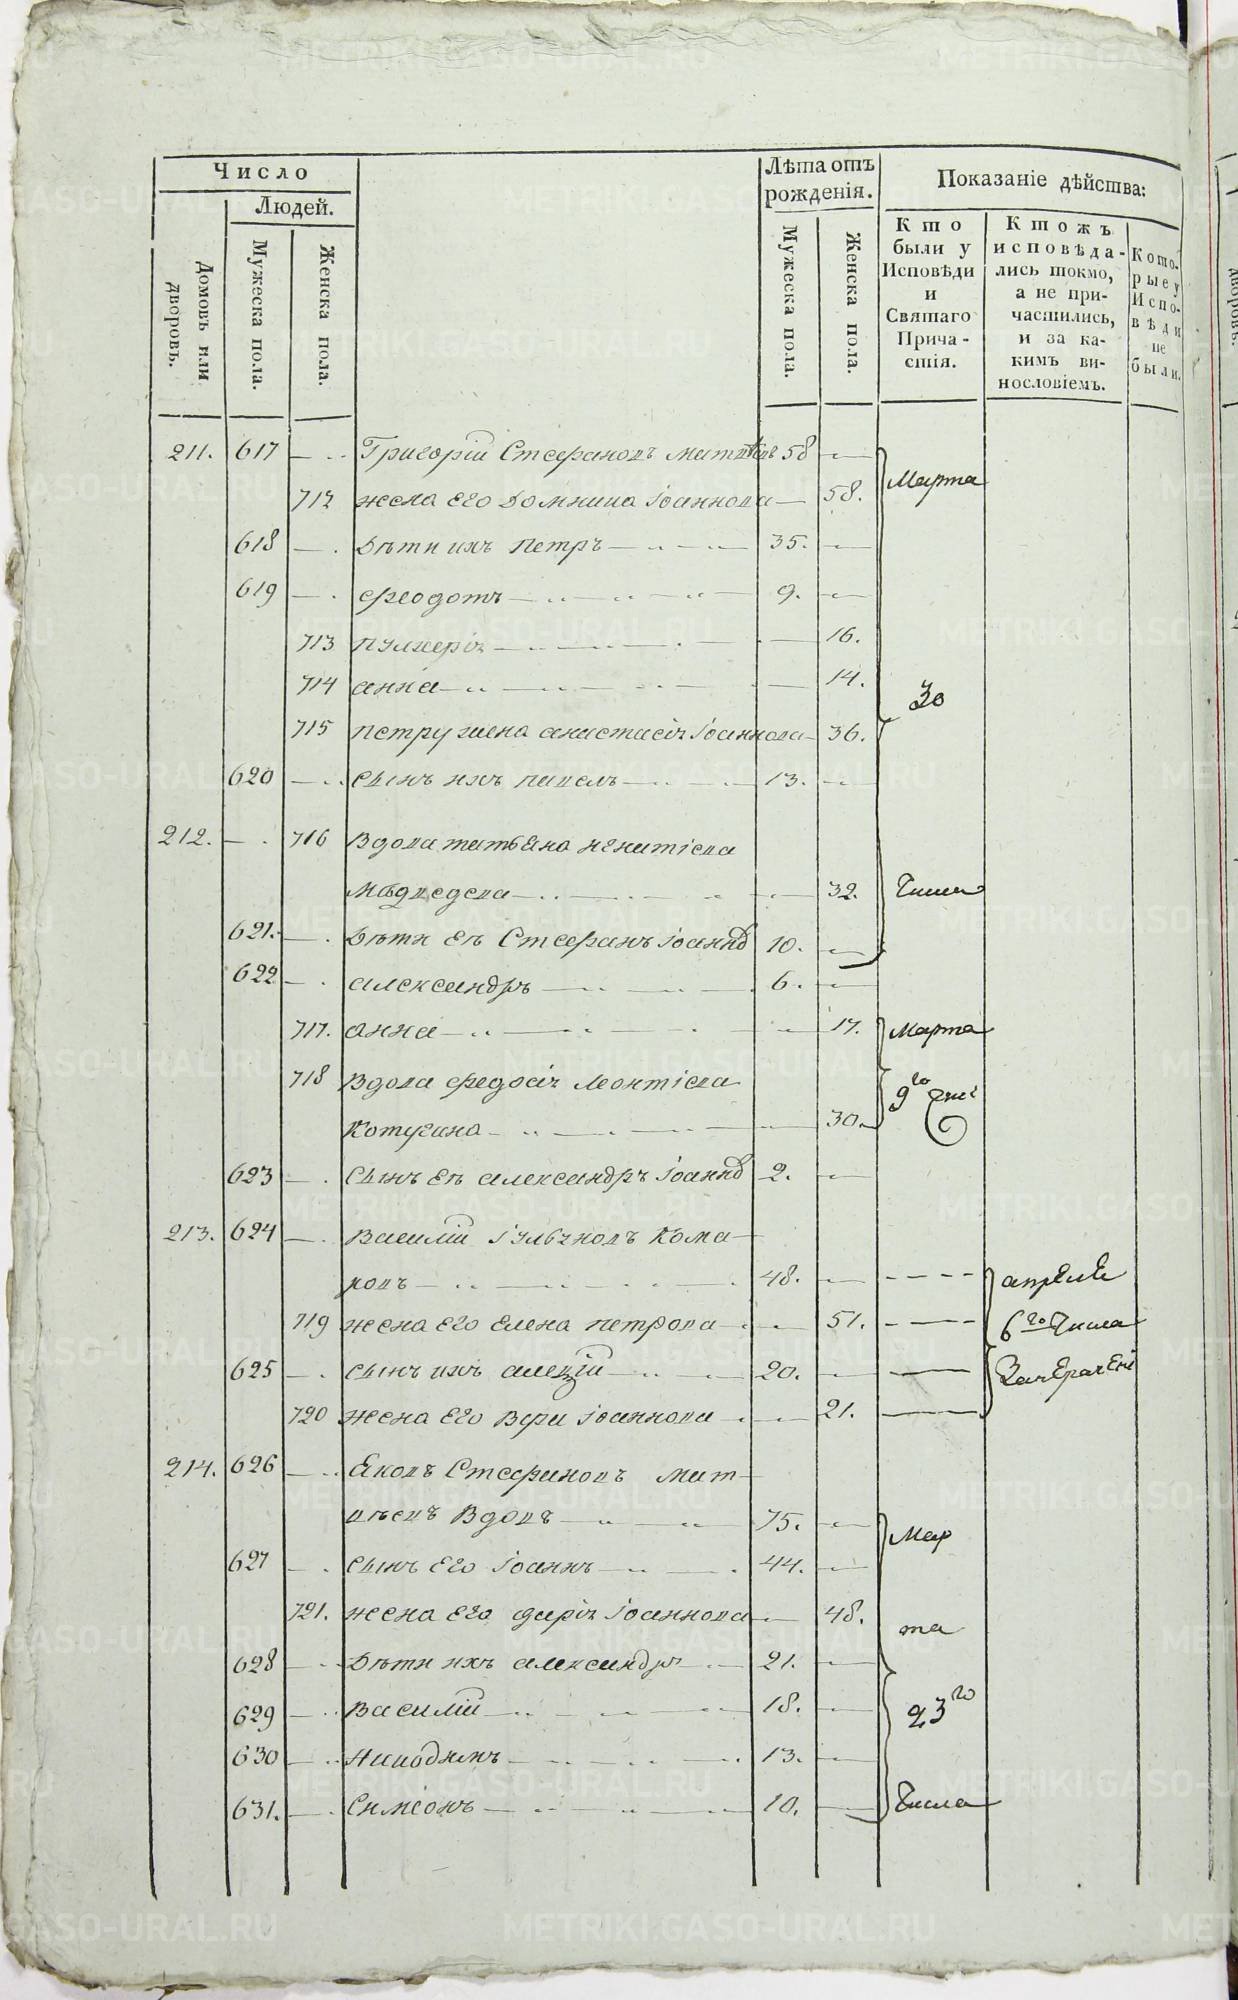 Число
Людей.
Домовъ или дворовъ.
Мужеска пола.
Женска пола.
Лѣта отъ рожденія.
Мужеска пола.
Женска пола.
Показаніе дѣйства:
Кто были у Исповѣди и Святаго Прича-стія.
Ктожъ исповѣда-лись токмо, а не при-частились, и за ка-кимъ ви-нословіемъ.
Кото-рые у Испо-вѣди не были.
211. 617 Григорій Стефановъ Митпѣевъ 58
712 жена Его Домника Іоаннова 58. Марта
618 Дѣти ихъ Петръ 35.
619 Феодотъ 9.
713 Пулхерія 16.
714 анна 14. 30
715 Петру жена анастасія Іоаннова 36.
620 сынъ ихъ павелъ 13.
212. 716 Вдова татьяна игнатіева
Мѣдведева 32. Числа
621. Дѣти Ея Стефанъ Іоанновъ 10.
622 александръ 6.
717. анна 17. Марта
718 Вдова Федосія Леонтіева 9го
Котугина 30.
623 сынъ Ея александръ Іоанновъ 2.
213. 624 Василій Іульяновъ Кома-
ровъ 48. апреля
719 жена Его Елена петрова 51. 6го Числа
625 сынъ ихъ алексій 20.
720 жена Его Вера Іоаннова 21.
214. 626 Яковъ Стефановъ Мат-
вѣевъ Вдовъ 75. Мар
627 сынъ Его Іоаннъ 44.
721. жена Его дарія Іоаннова 48. та
628 Дѣти ихъ александръ 21.
629 Василій 18. 23го
630 Никодимъ 13.
631. Симеонъ 10. Числа
METRIKI.GASO-URAL.RU